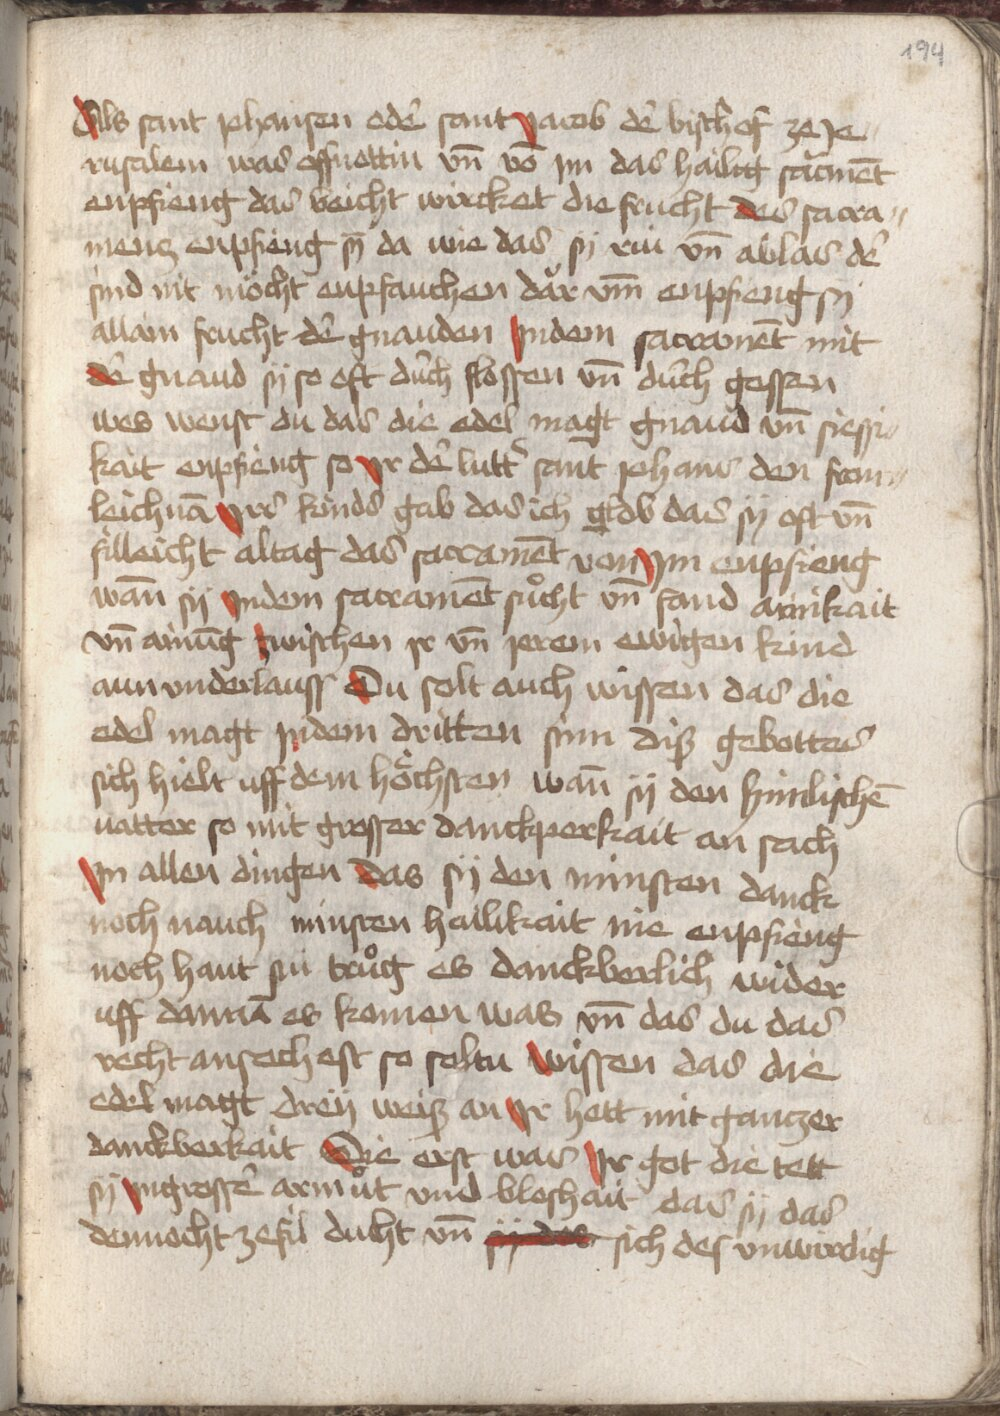 194
Als sant johansen odẽ sant jacob dẽ bischof ze Je〃
rusalem was offnottin vñ võ jm das hailig sacrmẽt
enpfieng das beicht wircket die frucht des sacra〃
mentz enpfieng sÿ da wie das sÿ rüi vñ ablas dẽ
sünd nit möcht enpfauchen dar vm̃ enpfieng sÿ
allain frucht dẽ gnauden Jndem sacramẽt mit
dẽ gnaud sÿ so oft durch flossen vñ durch gossen
wes wenst du das die edel magt gnaud vñ siessi〃
kait enpfieng so Jr dẽ lutter sant johans den fron〃
leichnã Jrs kinds gab das ich glob das sÿ oft vñ
filleicht altag das sacramẽt von Jm enpfieng
wañ sÿ Jndem sacramẽt sůcht vñ fand ainikait
vñ ainũg zwischen jr vñ jerem ewigen kind
aun vnderlauss Du solt auch wissen das die
edel magt jndem dritten sinn diß gebottes
sich hielt uff dem höchsten wañ sÿ den himlischẽ
vatter so mit grosser danckperkait an sach
Jn allen dingen das sÿ den minsten danck
noch nauch minsten hailikait nie enpfieng
noch haut sü trůg es danckberlich wider
uff dannã es komen was vñ das du das
recht ansechest so soltu wissen das die
edel magt dreÿ weiß an Jr hett mit ganczer
danckberkait Die erst was Jr got die tett
sÿ Jngrossẽ armůt vnd bloshait das sÿ das
dennocht ze fil ducht vñ sÿ des sich des vnwirdig